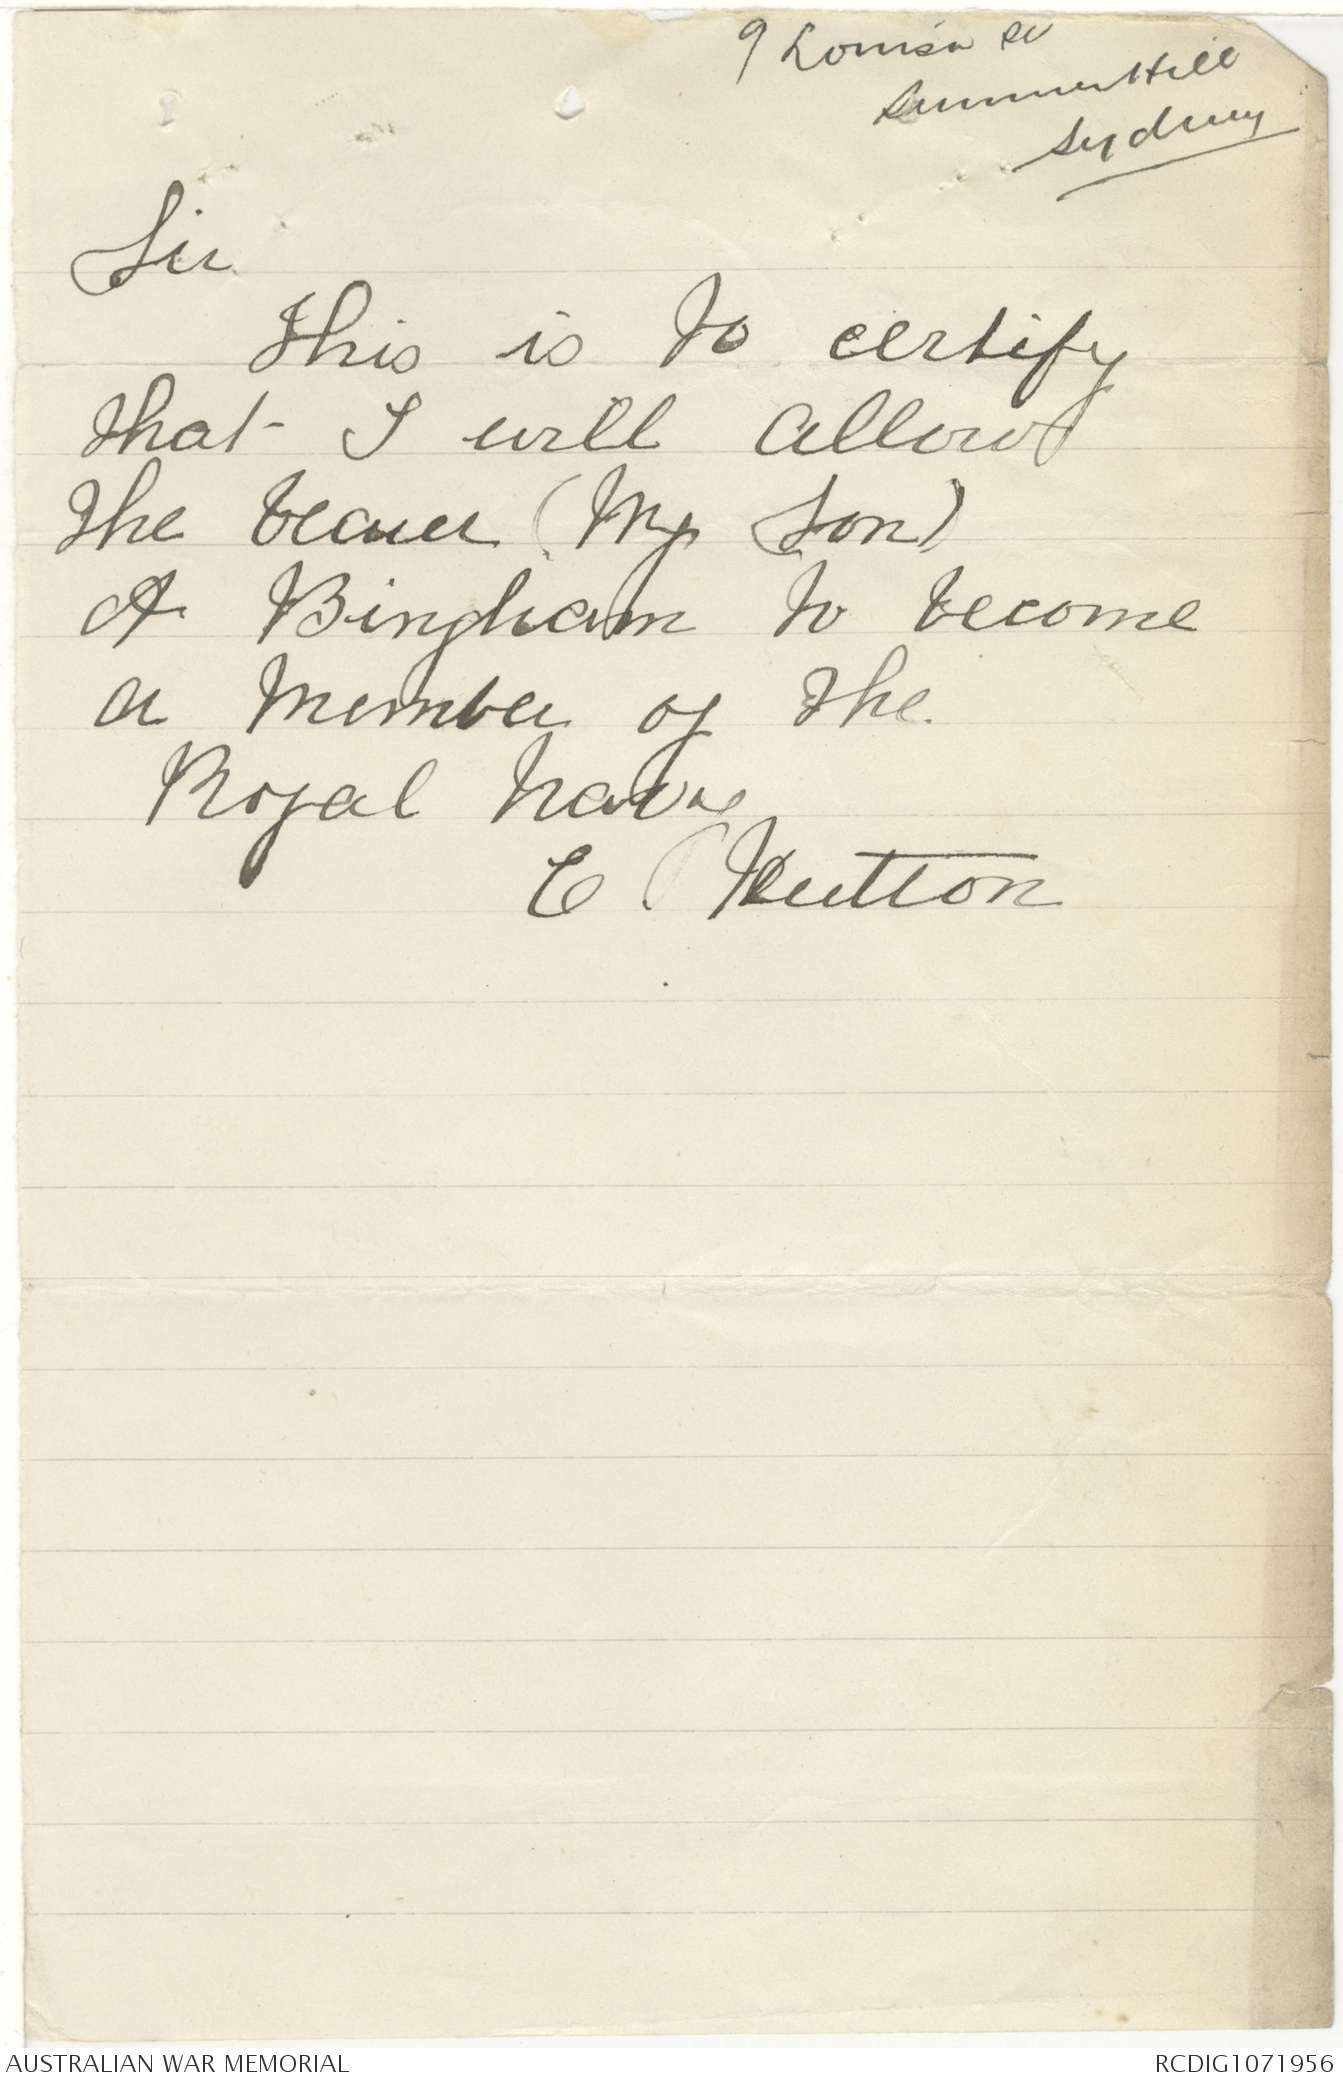 9 Louisa St
Summer Hill
Sydney
Sir
This is to certify
that I will allow
the bearer (My Son)
A Bingham to become
a Member of the
Royal Navy
E Hutton
AUSTRALIAN WAR MEMORIAL
RCDIG1071956